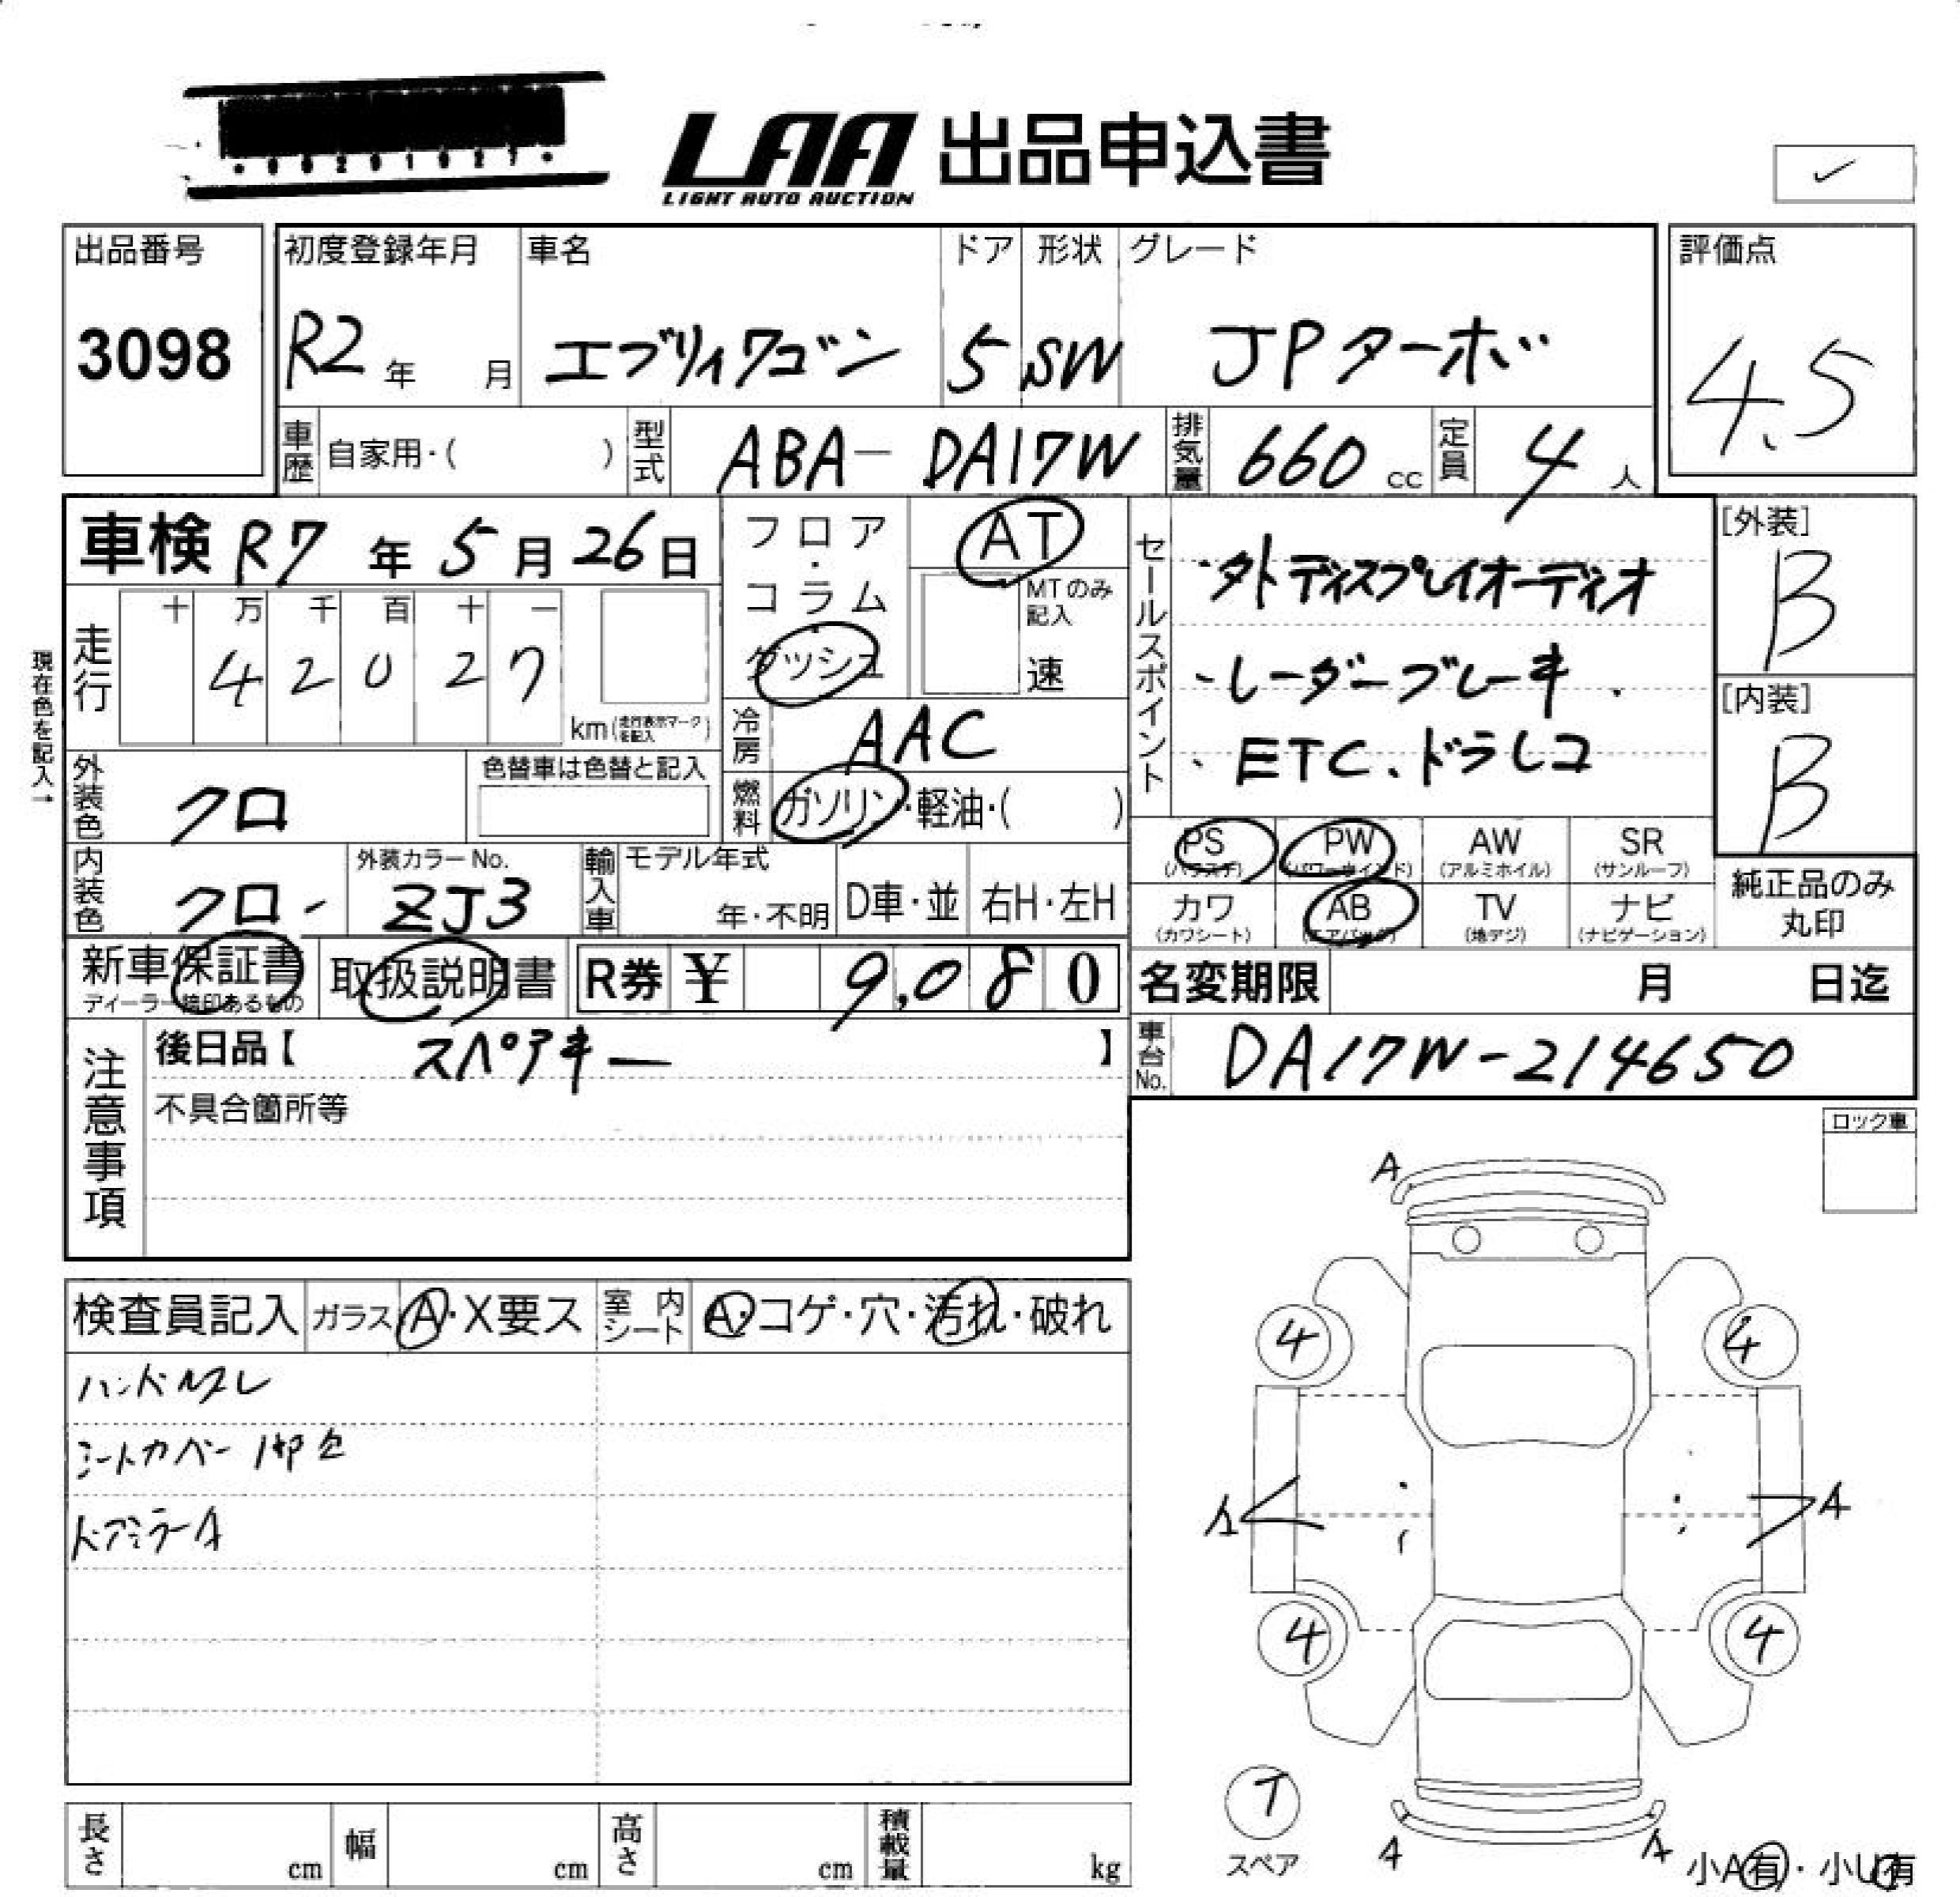 LAA 出品申込書
LIGHT AUTO AUCTION
✓
出品番号
3098
初度登録年月
R2年 月
車名
エブリィワゴン
ドア
5
形状
SW
グレード
JPターボ
評価点
4.5
車歴 自家用・( )
型式 ABA-DA17W
排気量 660 cc
定員 4 人
車検 R7年5月26日
フロア・コラム・ダッシュ
AT
MTのみ記入
速
セールスポイント
・外ディスプレイオーディオ
・レーダーブレーキ
・ETC、ドラレコ
[外装]
B
[内装]
B
現在色を記入→
走行
十 万 千 百 十 一
4 2 0 2 7
km(走行表示マークを記入)
冷房 AAC
燃料 ガソリン・軽油・( )
外装色 クロ
色替車は色替と記入
内装色 クロ
外装カラーNo.
ZJ3
輸入車
モデル年式
年・不明
D車・並
右H・左H
PS
(パワステ)
PW
(パワーウインド)
AW
(アルミホイル)
SR
(サンルーフ)
カワ
(カワシート)
AB
(エアバッグ)
TV
(地デジ)
ナビ
(ナビゲーション)
純正品のみ
丸印
新車保証書
ディーラー捺印あるもの
取扱説明書
R券 ¥ 9,080
名変期限 月 日迄
車台No. DA17W-214650
注意事項
後日品【 スペアキー 】
不具合箇所等
ロック車
検査員記入
ガラス A・X要ス
室内シート A・コゲ・穴・汚れ・破れ
ハンドルスレ
シートカバー1部欠
ドアミラーA
A
4 4
A A
4 4
T
スペア
A A
小A有・小U有
長さ cm
幅 cm
高さ cm
積載量 kg